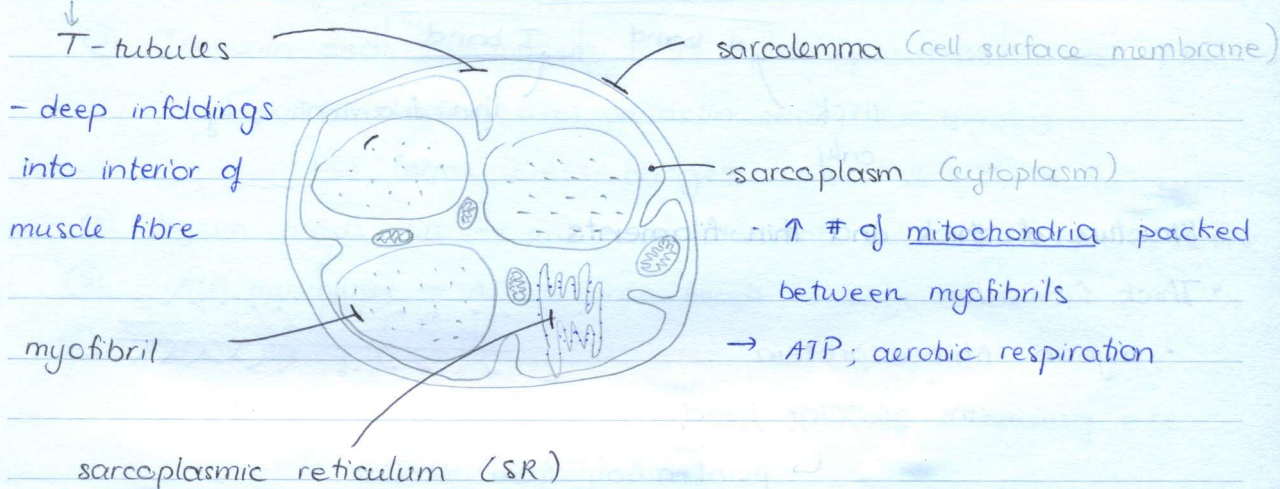 ↓
T-tubules
- deep infoldings
into interior of
muscle fibre
myofibril
sarcoplasmic reticulum (SR)
sarcolemma (cell surface membrane)
sarcoplasm (cytoplasm)
- ↑ # of mitochondria packed
between myofibrils
→ ATP; aerobic respiration